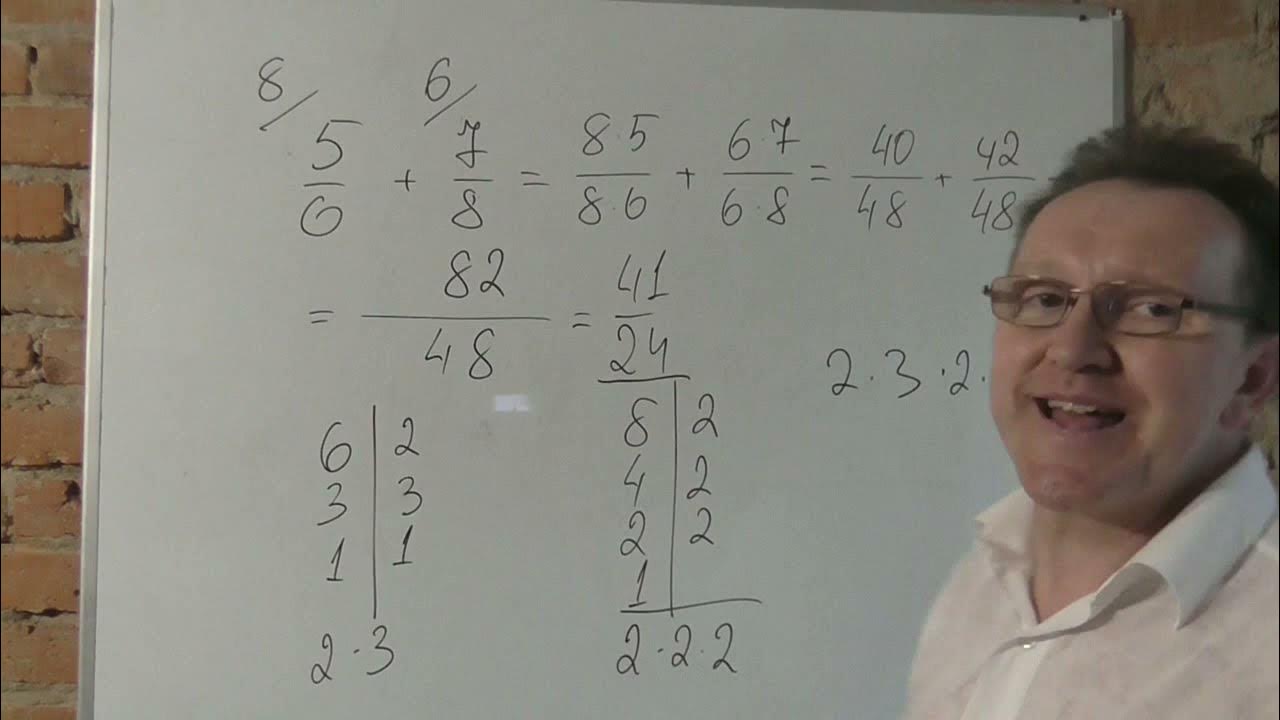 8/ 6/
5/6 + 7/8 = 8·5/8·6 + 6·7/6·8 = 40/48 + 42/48
= 82/48 = 41/24
2·3·2·
6 | 2
3 | 3
1 | 1
2·3
8 | 2
4 | 2
2 | 2
1 |
2·2·2